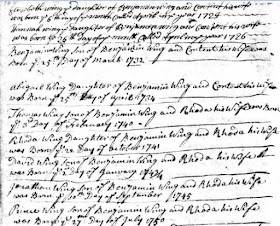 Elizabeth wing ye daughter of Benjamin wing and Content his wife
was born ye 6th day of ye month called April in ye year 1724
Hannah wing ye daughter of Benjamin wing and Content his wife
was born ye 26th day of ye month called April in ye year 1726
Benjamin Wing Son of Benjamin Wing and Content his Wife was
Born ye 25th Day of March 1732
Abigail Wing Daughter of Benjamin Wing and Content his wife
was Born ye 25th Day of April 1734
Thomas Wing Son of Benjamin Wing and Rhoda his Wife was Born
ye 3d Day of February 1740
Rhoda Wing Daughter of Benjamin Wing and Rhoda his wife
was Born ye 22 day of october 1741
David Wing Son of Benjamin Wing and Rhoda his Wife
was Born ye 2 day of January
Jonathan Wing Son of Benjamin Wing and Rhoda his Wife
was Born ye 10th Day of September 1745
Prince Wing Son of Benjamin Wing and Rhoda his wife
was Born ye 27th Day of July 1750